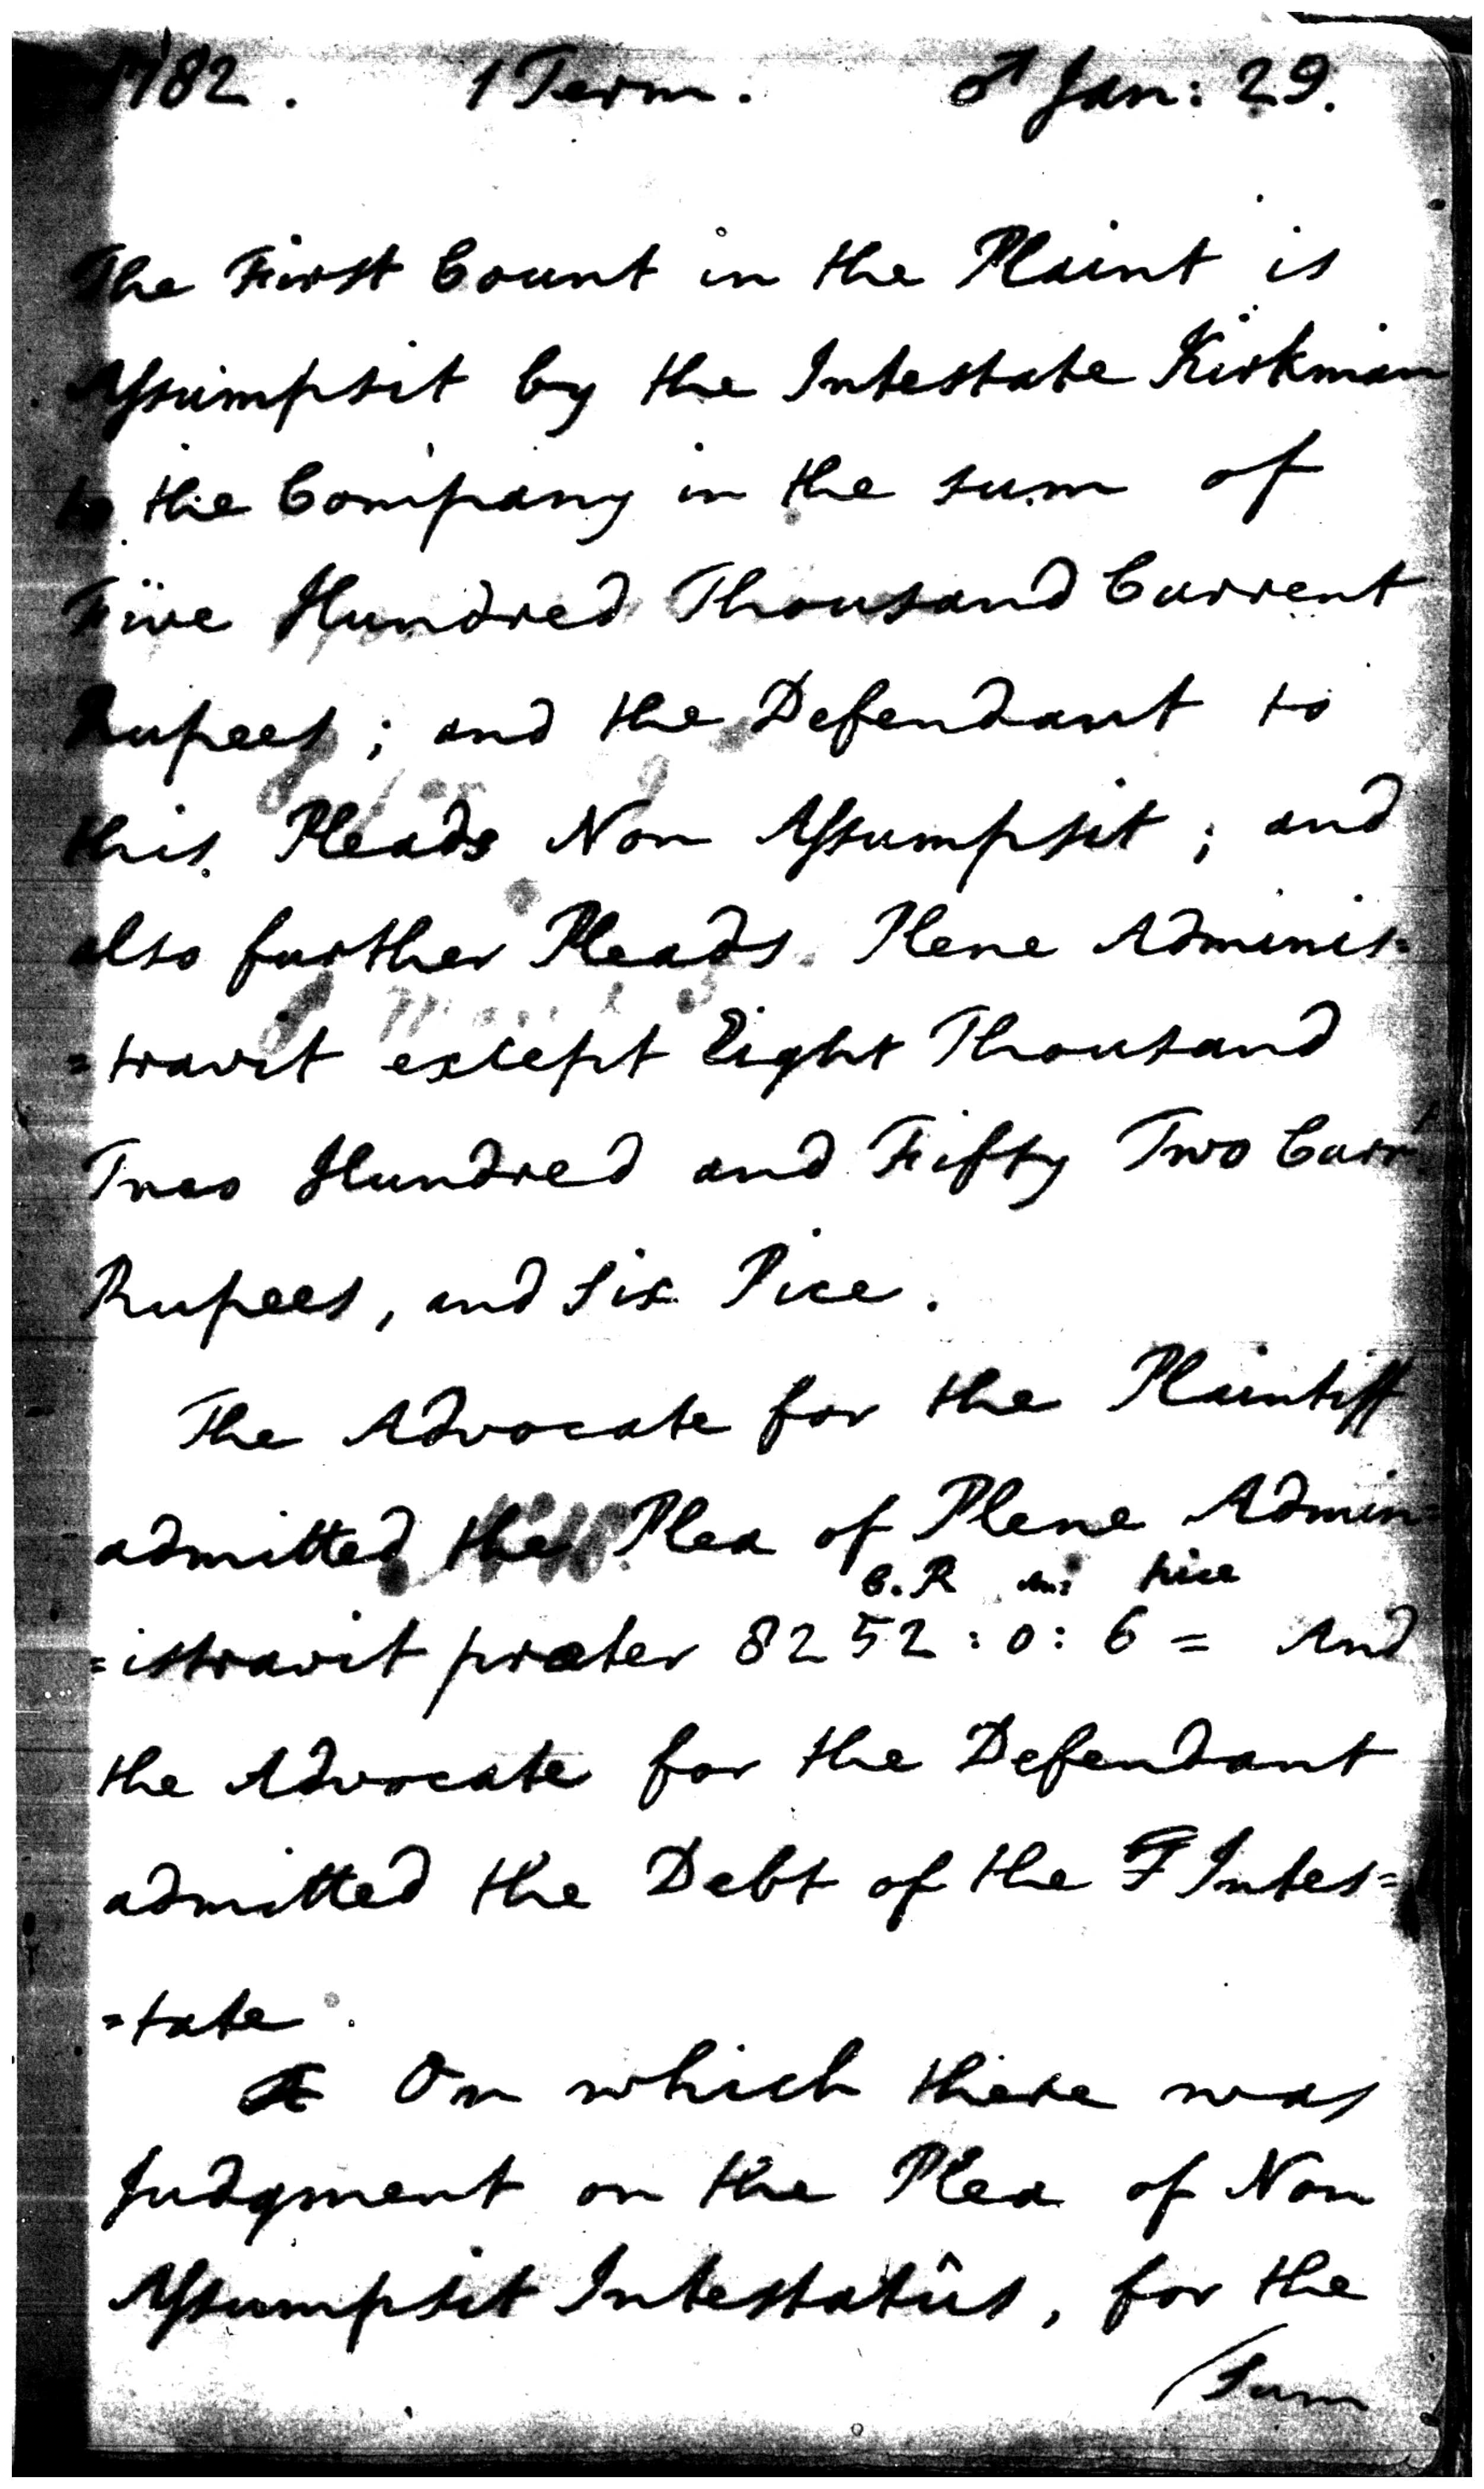 1782. 1 Term. ♂ Jan: 29.
The First Count in the Plaint is
Assumpsit by the Intestate Kirkman
to the Company in the sum of
Five Hundred Thousand Current
Rupees; and the Defendant to
this Pleads Non Assumpsit; and
also further Pleads Plene Adminis=
=travit except Eight Thousand
Two Hundred and Fifty Two Curr.t
Rupees, and Six Pice.
The Advocate for the Plaintiff
admitted the Plea of Plene Admin=
C.R an: pice
=istravit præter 8252:0:6= And
the Advocate for the Defendant
admitted the Debt of the Intes=
=tate.
On which there was
Judgment on the Plea of Non
Assumpsit Intestatûs, for the
Sum